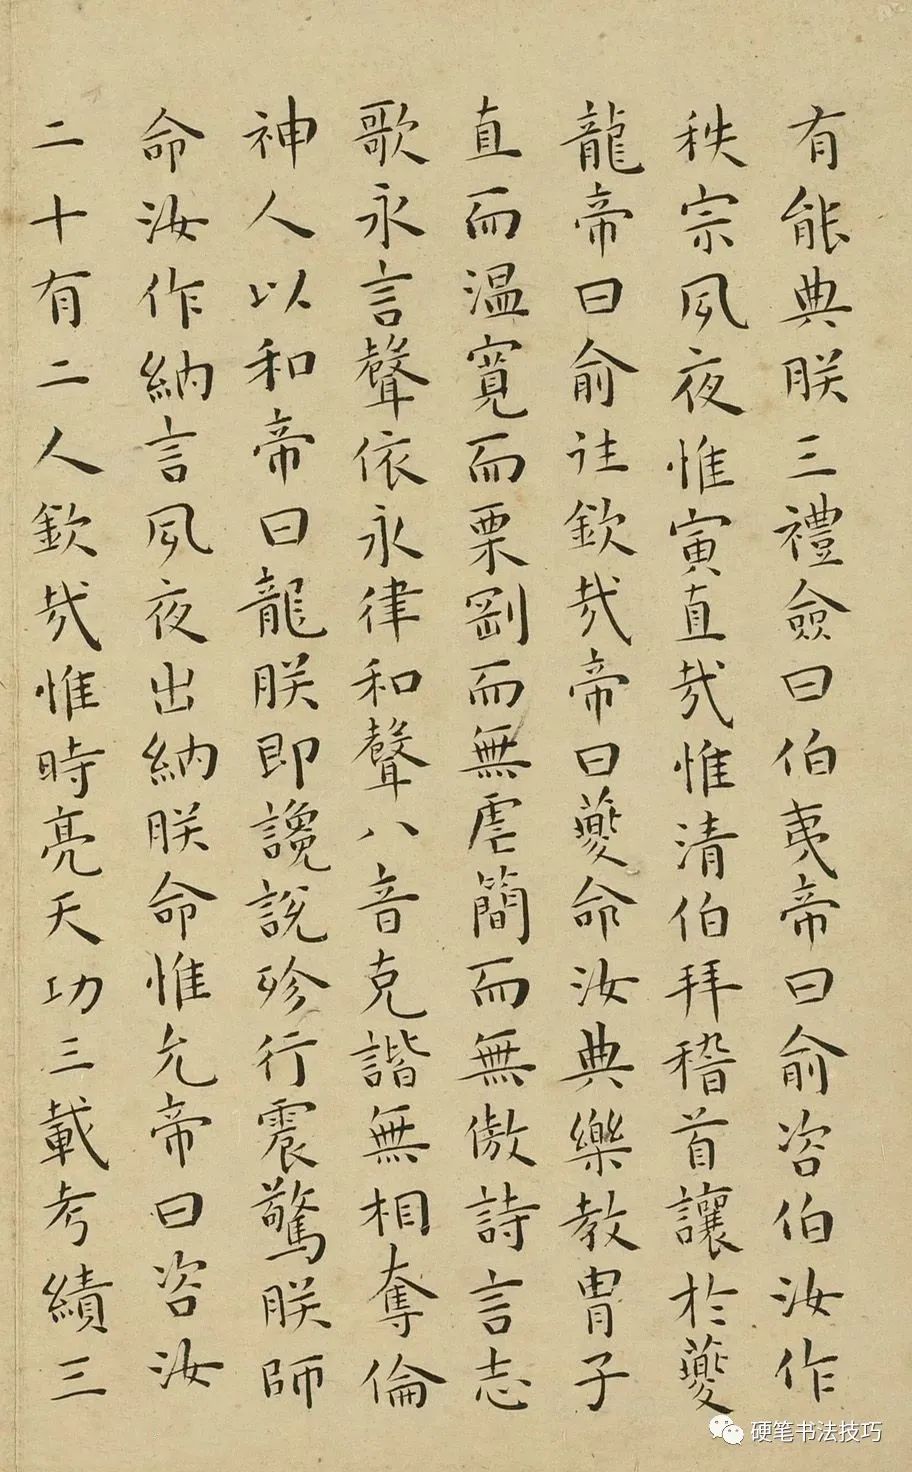 有能典朕三禮僉曰伯夷帝曰俞咨伯汝作
秩宗夙夜惟寅直哉惟清伯拜稽首讓於夔
龍帝曰俞往欽哉帝曰夔命汝典樂教胄子
直而溫寬而栗剛而無虐簡而無傲詩言志
歌永言聲依永律和聲八音克諧無相奪倫
神人以和帝曰龍朕即讒說殄行震驚朕師
命汝作納言夙夜出納朕命惟允帝曰咨汝
二十有二人欽哉惟時亮天功三載考績三
硬笔书法技巧